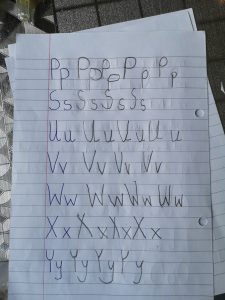 Pp Pp Pp Pp Pp
Ss Ss Ss Ss
Uu Uu Uu Uu
Vv Vv Vv Vv
Ww Ww Ww Ww
Xx Xx Xx Xx
Yy Yy Yy Yy